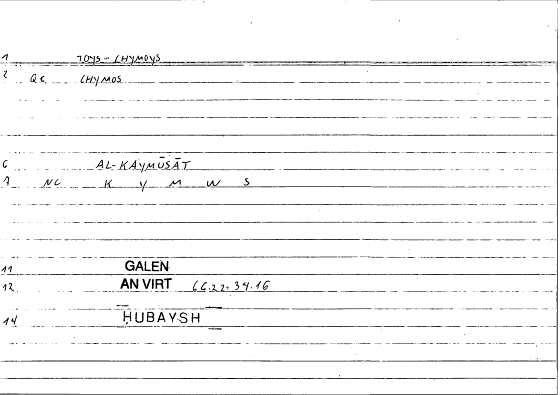 1 TOYS - CHYMOYS
2 QC CHYMOS
6 AL-KAYMŪSĀT
7 NC K Y M W S
11 GALEN
12 AN VIRT 66.22-34.16
14 ḤUBAYSH